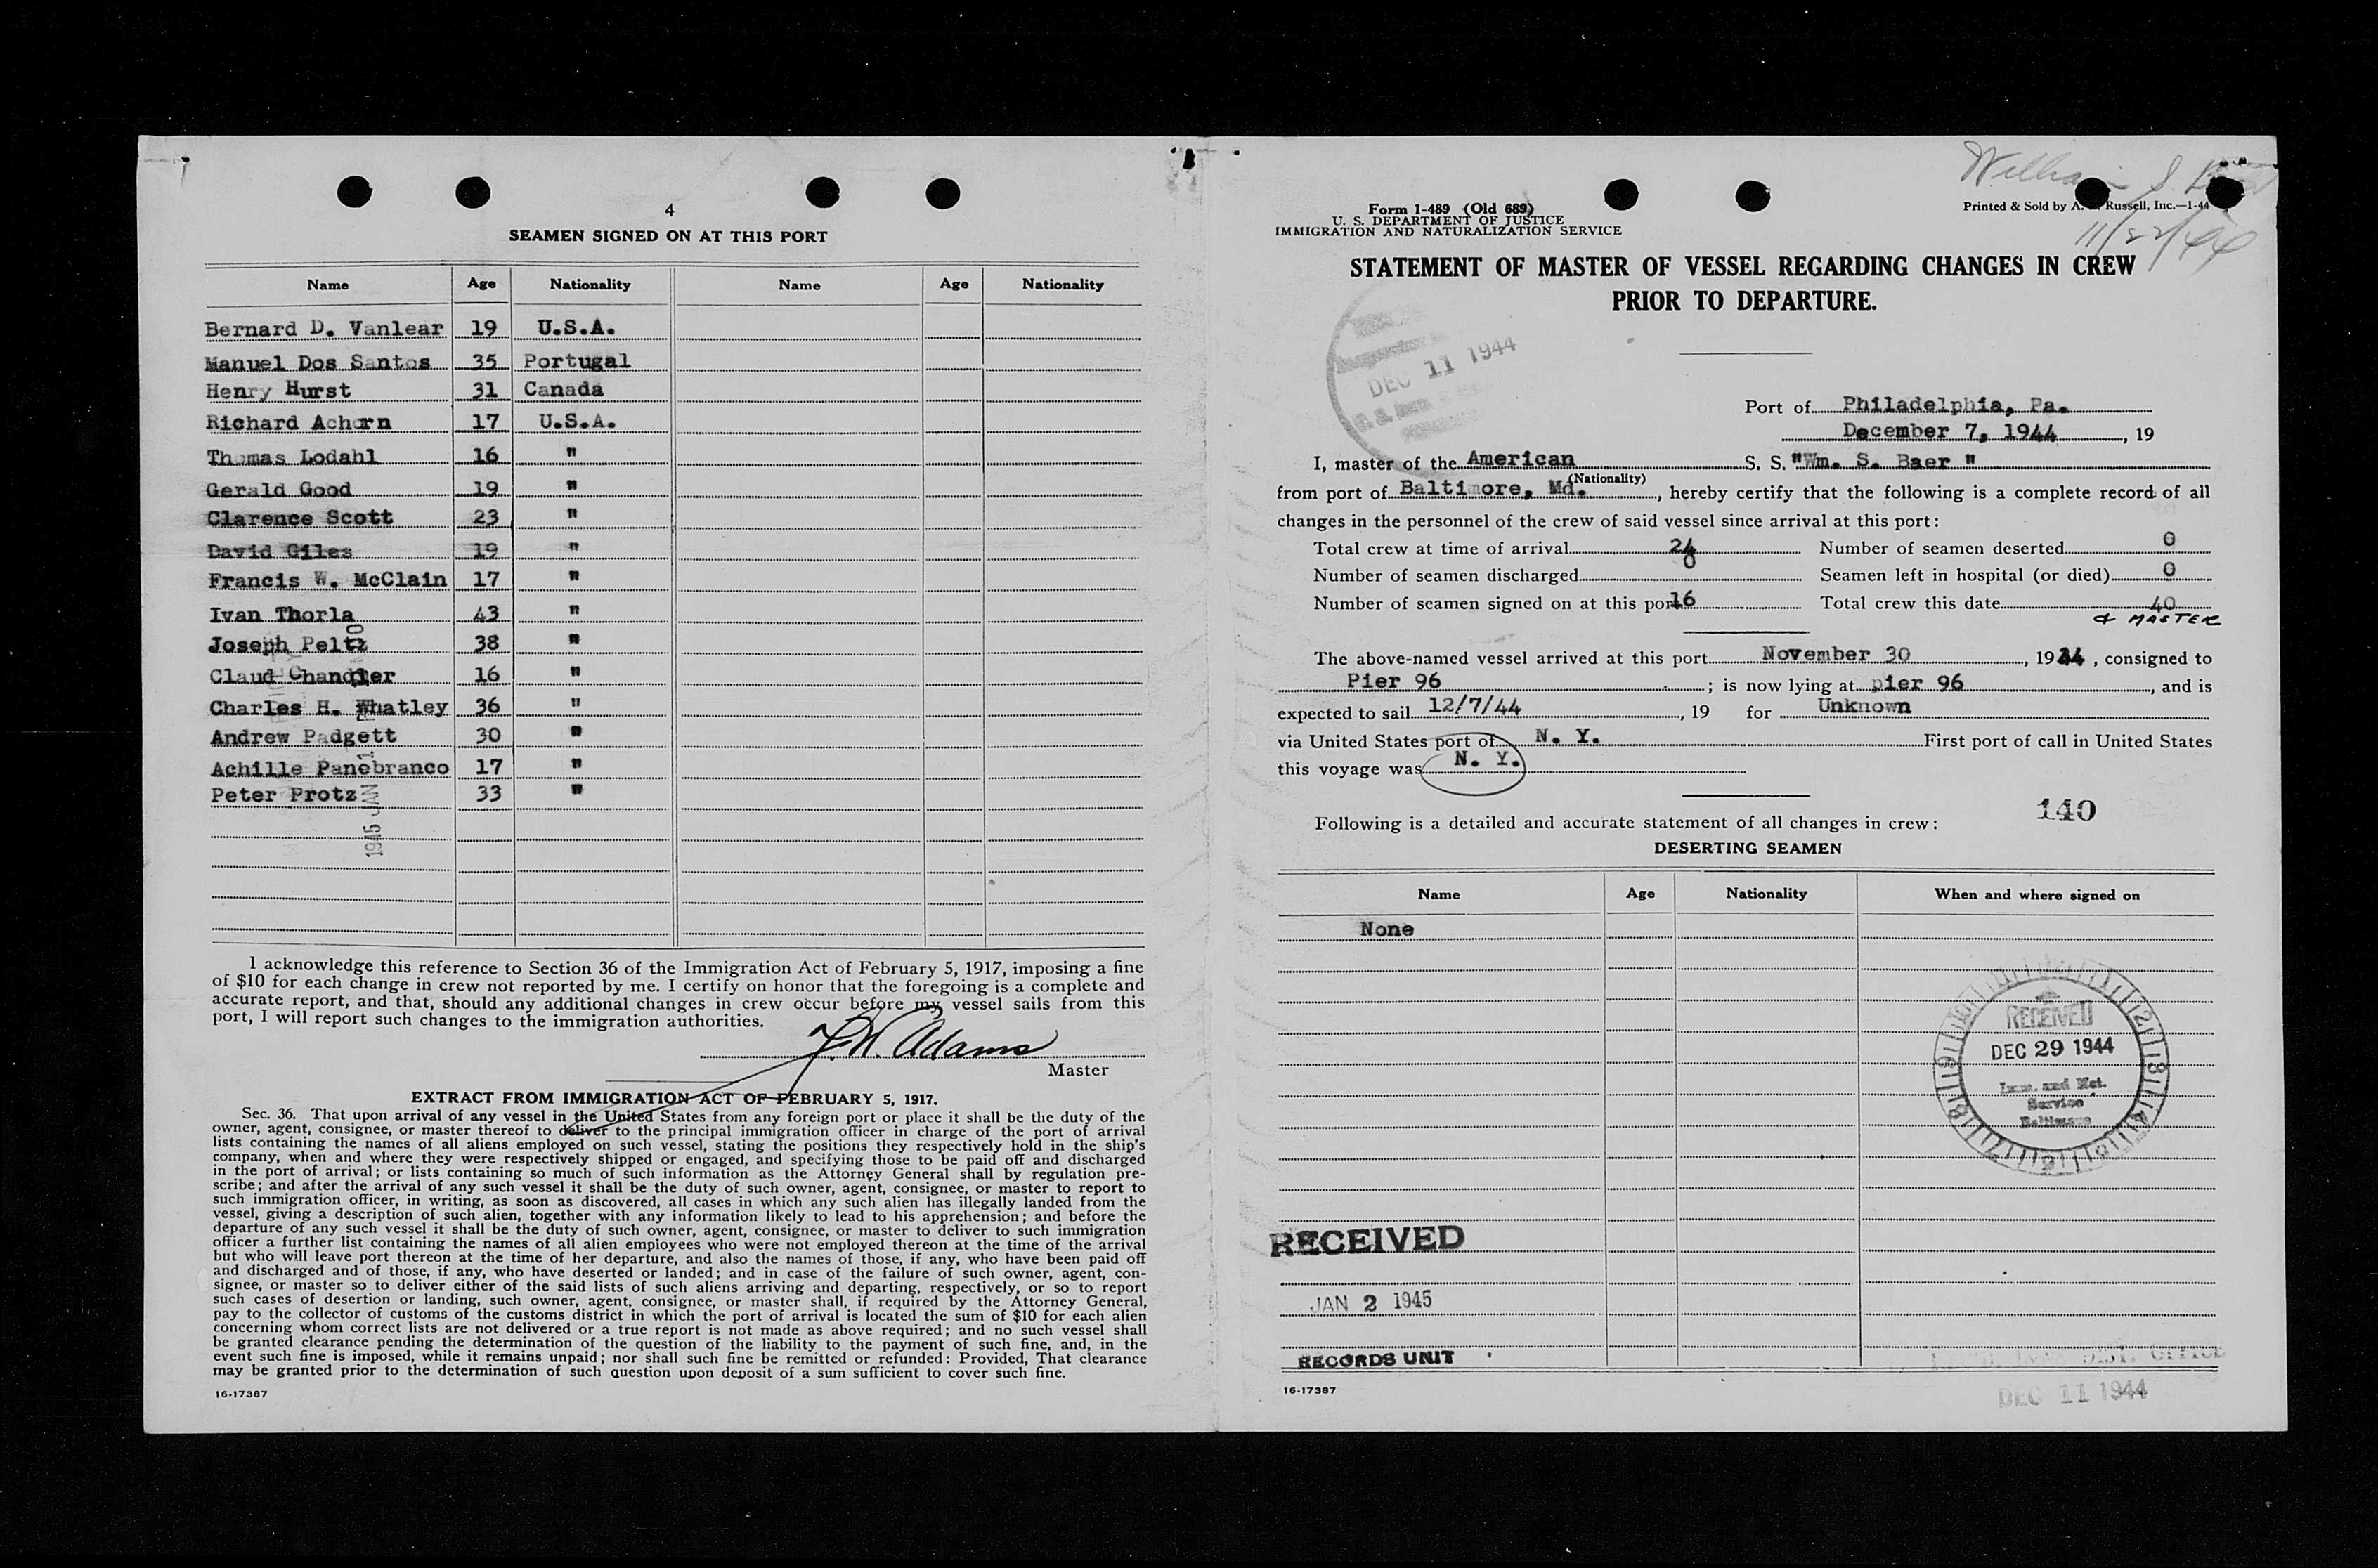 4
SEAMEN SIGNED ON AT THIS PORT
Name Age Nationality Name Age Nationality
Bernard D. Vanlear 19 U.S.A.
Manuel Dos Santos 35 Portugal
Henry Hurst 31 Canada
Richard Achorn 17 U.S.A.
Thomas Lodahl 16 "
Gerald Good 19 "
Clarence Scott 23 "
David Giles 19 "
Francis W. McClain 17 "
Ivan Thorla 43 "
Joseph Peltz 38 "
Claud Chandler 16 "
Charles H. Whatley 36 "
Andrew Padgett 30 "
Achille Panebranco 17 "
Peter Protz 33 "
1945 JAN
I acknowledge this reference to Section 36 of the Immigration Act of February 5, 1917, imposing a fine
of $10 for each change in crew not reported by me. I certify on honor that the foregoing is a complete and
accurate report, and that, should any additional changes in crew occur before my vessel sails from this
port, I will report such changes to the immigration authorities.
F.W. Adams
Master
EXTRACT FROM IMMIGRATION ACT OF FEBRUARY 5, 1917.
Sec. 36. That upon arrival of any vessel in the United States from any foreign port or place it shall be the duty of the
owner, agent, consignee, or master thereof to deliver to the principal immigration officer in charge of the port of arrival
lists containing the names of all aliens employed on such vessel, stating the positions they respectively hold in the ship's
company, when and where they were respectively shipped or engaged, and specifying those to be paid off and discharged
in the port of arrival; or lists containing so much of such information as the Attorney General shall by regulation pre-
scribe; and after the arrival of any such vessel it shall be the duty of such owner, agent, consignee, or master to report to
such immigration officer, in writing, as soon as discovered, all cases in which any such alien has illegally landed from the
vessel, giving a description of such alien, together with any information likely to lead to his apprehension; and before the
departure of any such vessel it shall be the duty of such owner, agent, consignee, or master to deliver to such immigration
officer a further list containing the names of all alien employees who were not employed thereon at the time of the arrival
but who will leave port thereon at the time of her departure, and also the names of those, if any, who have been paid off
and discharged and of those, if any, who have deserted or landed; and in case of the failure of such owner, agent, con-
signee, or master so to deliver either of the said lists of such aliens arriving and departing, respectively, or so to report
such cases of desertion or landing, such owner, agent, consignee, or master shall, if required by the Attorney General,
pay to the collector of customs of the customs district in which the port of arrival is located the sum of $10 for each alien
concerning whom correct lists are not delivered or a true report is not made as above required; and no such vessel shall
be granted clearance pending the determination of the question of the liability to the payment of such fine, and, in the
event such fine is imposed, while it remains unpaid; nor shall such fine be remitted or refunded: Provided, That clearance
may be granted prior to the determination of such question upon deposit of a sum sufficient to cover such fine.
16-17387
William S.
11/22/44
Form 1-489 (Old 689)
U. S. DEPARTMENT OF JUSTICE
IMMIGRATION AND NATURALIZATION SERVICE
Printed & Sold by A. Russell, Inc.—1-44
STATEMENT OF MASTER OF VESSEL REGARDING CHANGES IN CREW
PRIOR TO DEPARTURE.
DEC 11 1944
Port of Philadelphia, Pa.
December 7, 1944, 19
I, master of the American S. S. "Wm. S. Baer "
(Nationality)
from port of Baltimore, Md., hereby certify that the following is a complete record of all
changes in the personnel of the crew of said vessel since arrival at this port:
Total crew at time of arrival 24 Number of seamen deserted 0
Number of seamen discharged 0 Seamen left in hospital (or died) 0
Number of seamen signed on at this port 16 Total crew this date 40
& MASTER
The above-named vessel arrived at this port November 30, 1944, consigned to
Pier 96; is now lying at pier 96, and is
expected to sail 12/7/44, 19 for Unknown
via United States port of N. Y. First port of call in United States
this voyage was N. Y.
140
Following is a detailed and accurate statement of all changes in crew:
DESERTING SEAMEN
Name Age Nationality When and where signed on
None
RECEIVED
DEC 29 1944
Imm. and Nat.
Service
Baltimore
RECEIVED
JAN 2 1945
RECORDS UNIT
DIST. OFFICE
16-17387
DEC 11 1944